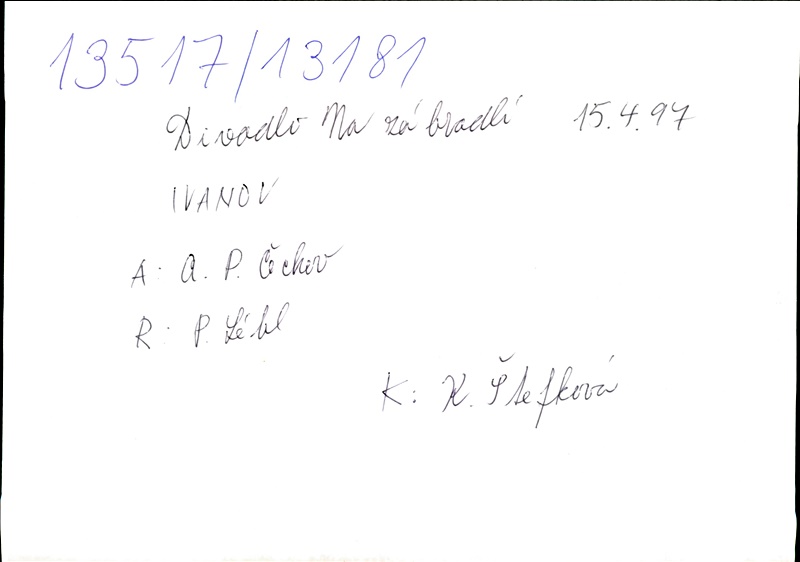 13517/13181
Divadlo Na zábradlí 15.4.97
IVANOV
A: A. P. Čechov
R: P. Lébl
K: K. Štefková